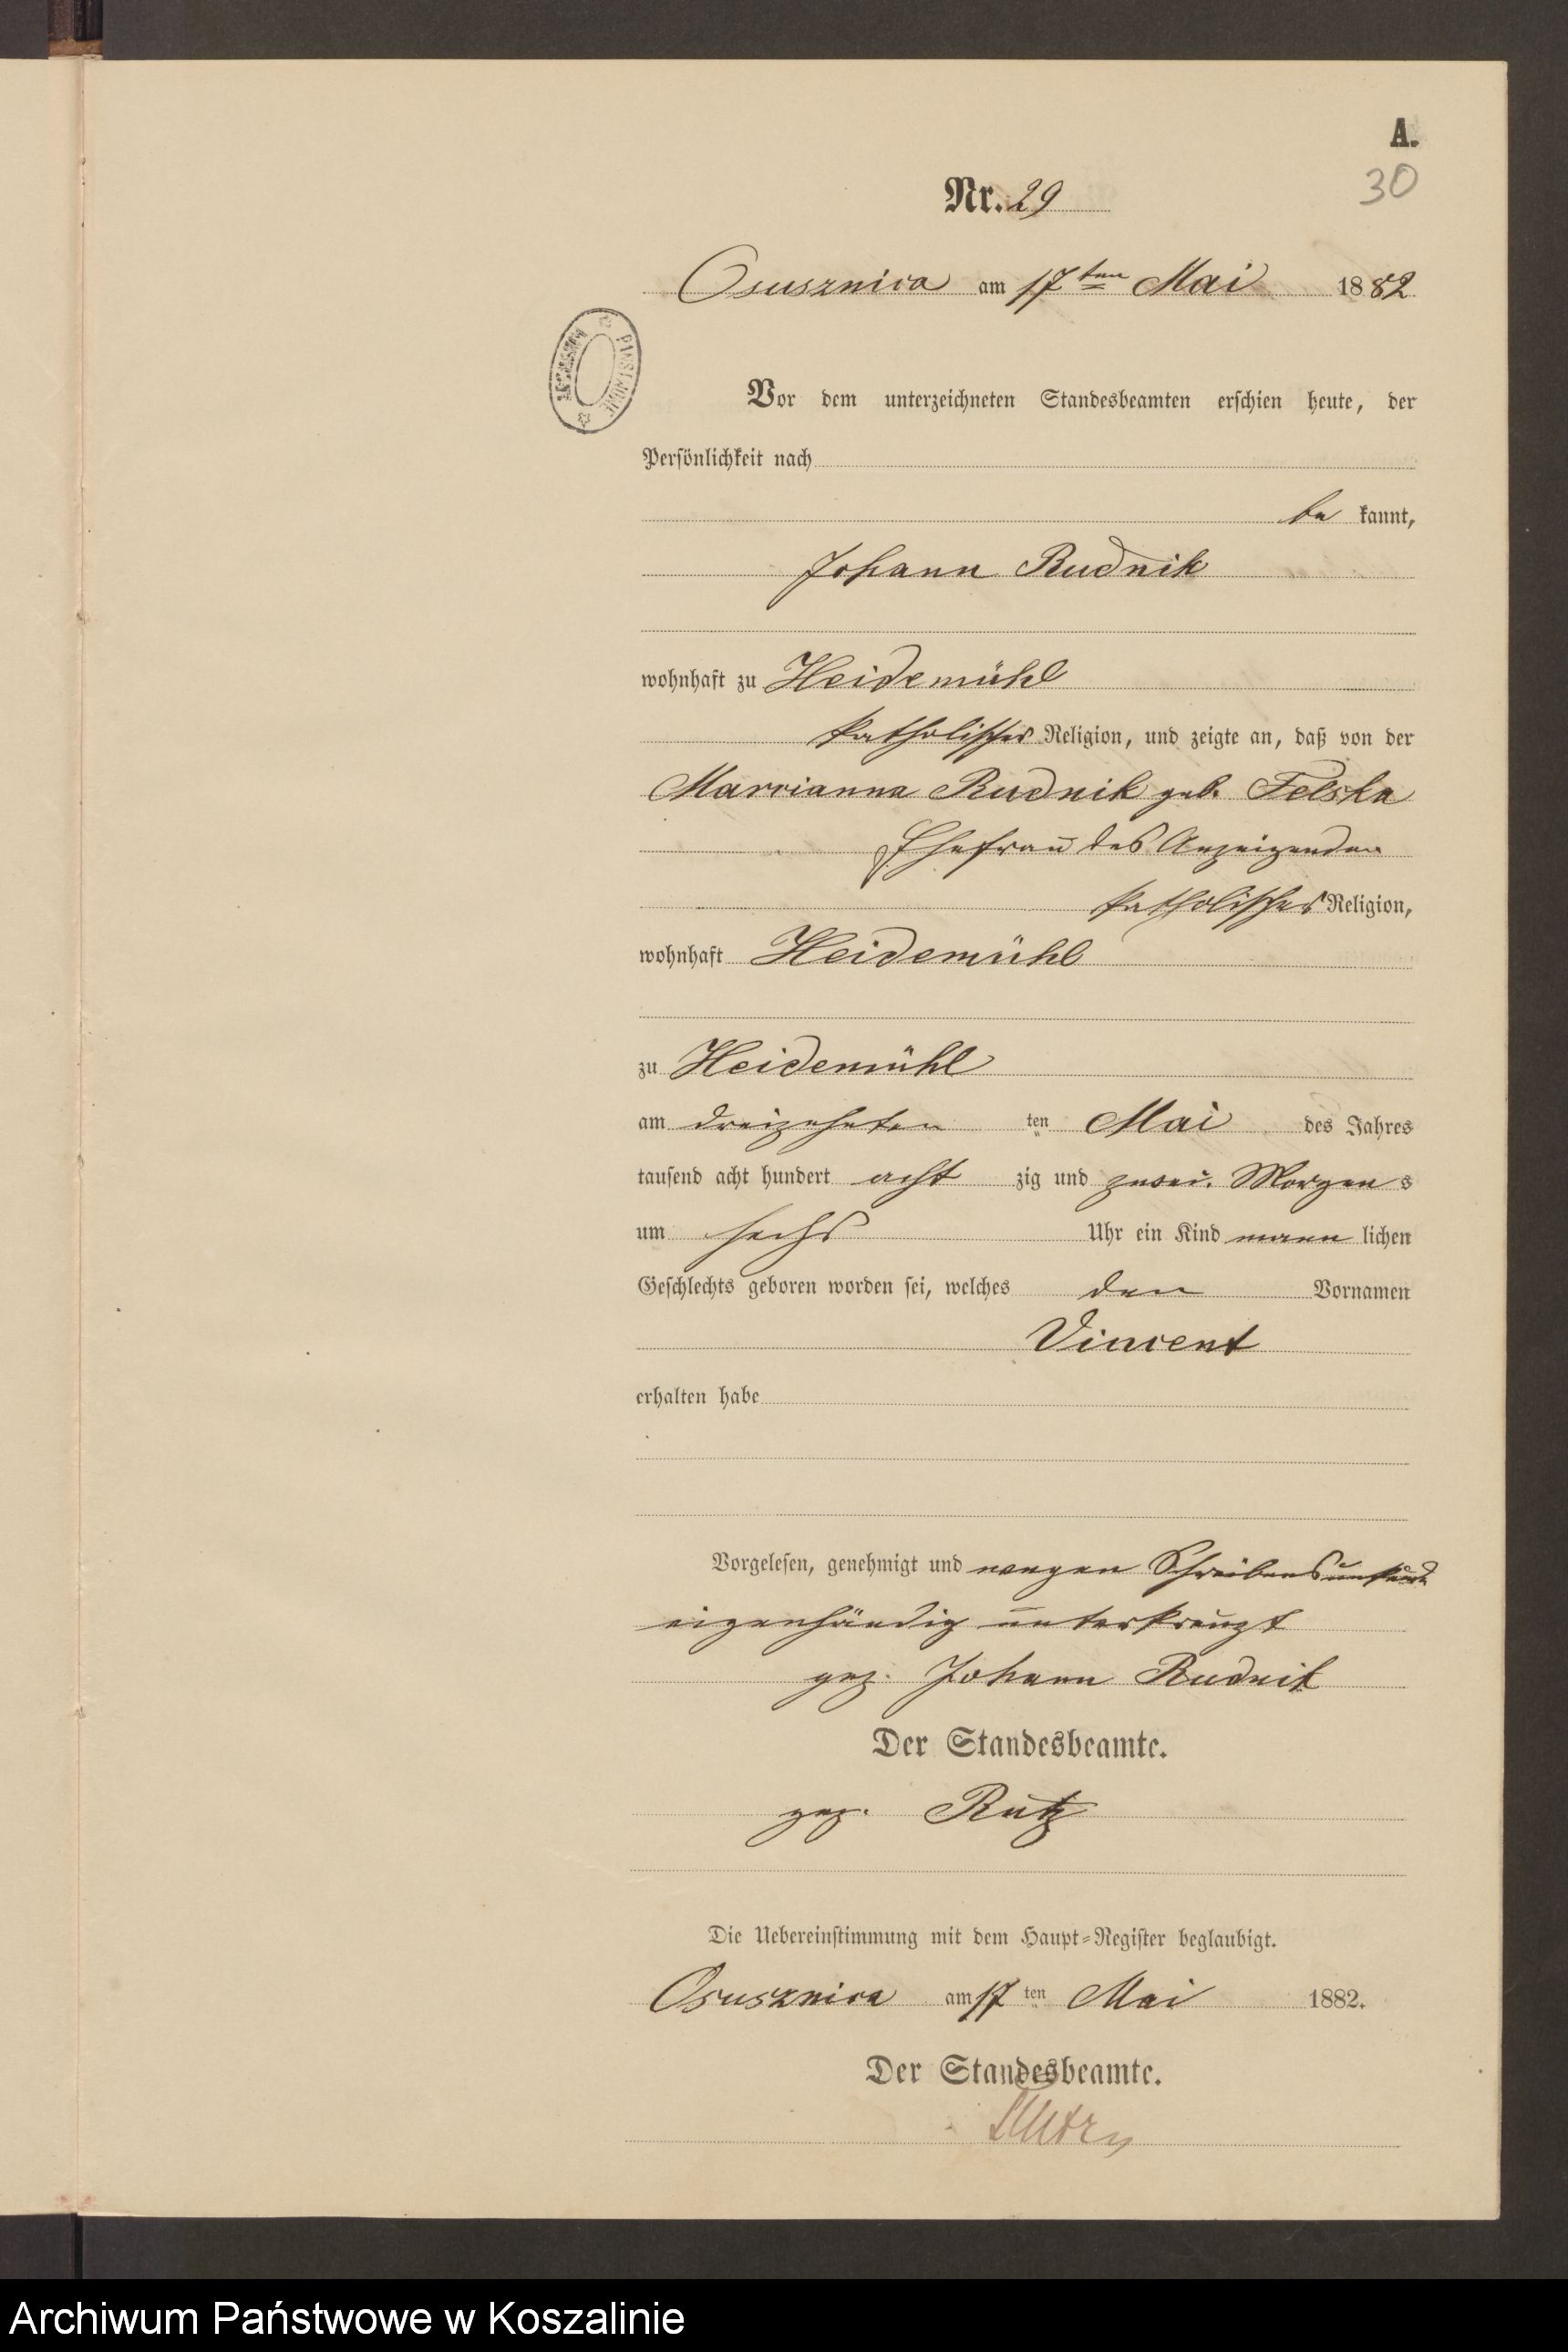 A.
30
Nr. 29
Osusznica am 17ten Mai 1882
Vor dem unterzeichneten Standesbeamten erschien heute, der
Persönlichkeit nach
be kannt,
Johann Rudnik
wohnhaft zu Heidemühl
katholischer Religion, und zeigte an, daß von der
Marrianna Rudnik geb. Felska
Ehefrau des Anzeigenden
katholischer Religion,
wohnhaft Heidemühl
zu Heidemühl
am dreizehnten ten Mai des Jahres
tausend acht hundert acht zig und zwei. Morgen s
um sechs Uhr ein Kind männ lichen
Geschlechts geboren worden sei, welches den Vornamen
Vincent
erhalten habe
Vorgelesen, genehmigt und wegen Schreibensunkunde
eigenhändig unterkreuzt
gez. Johann Rudnik
Der Standesbeamte.
gez. Rutz
Die Uebereinstimmung mit dem Haupt-Register beglaubigt.
Osusznica am 17 ten Mai 1882.
Der Standesbeamte.
Archiwum Państwowe w Koszalinie